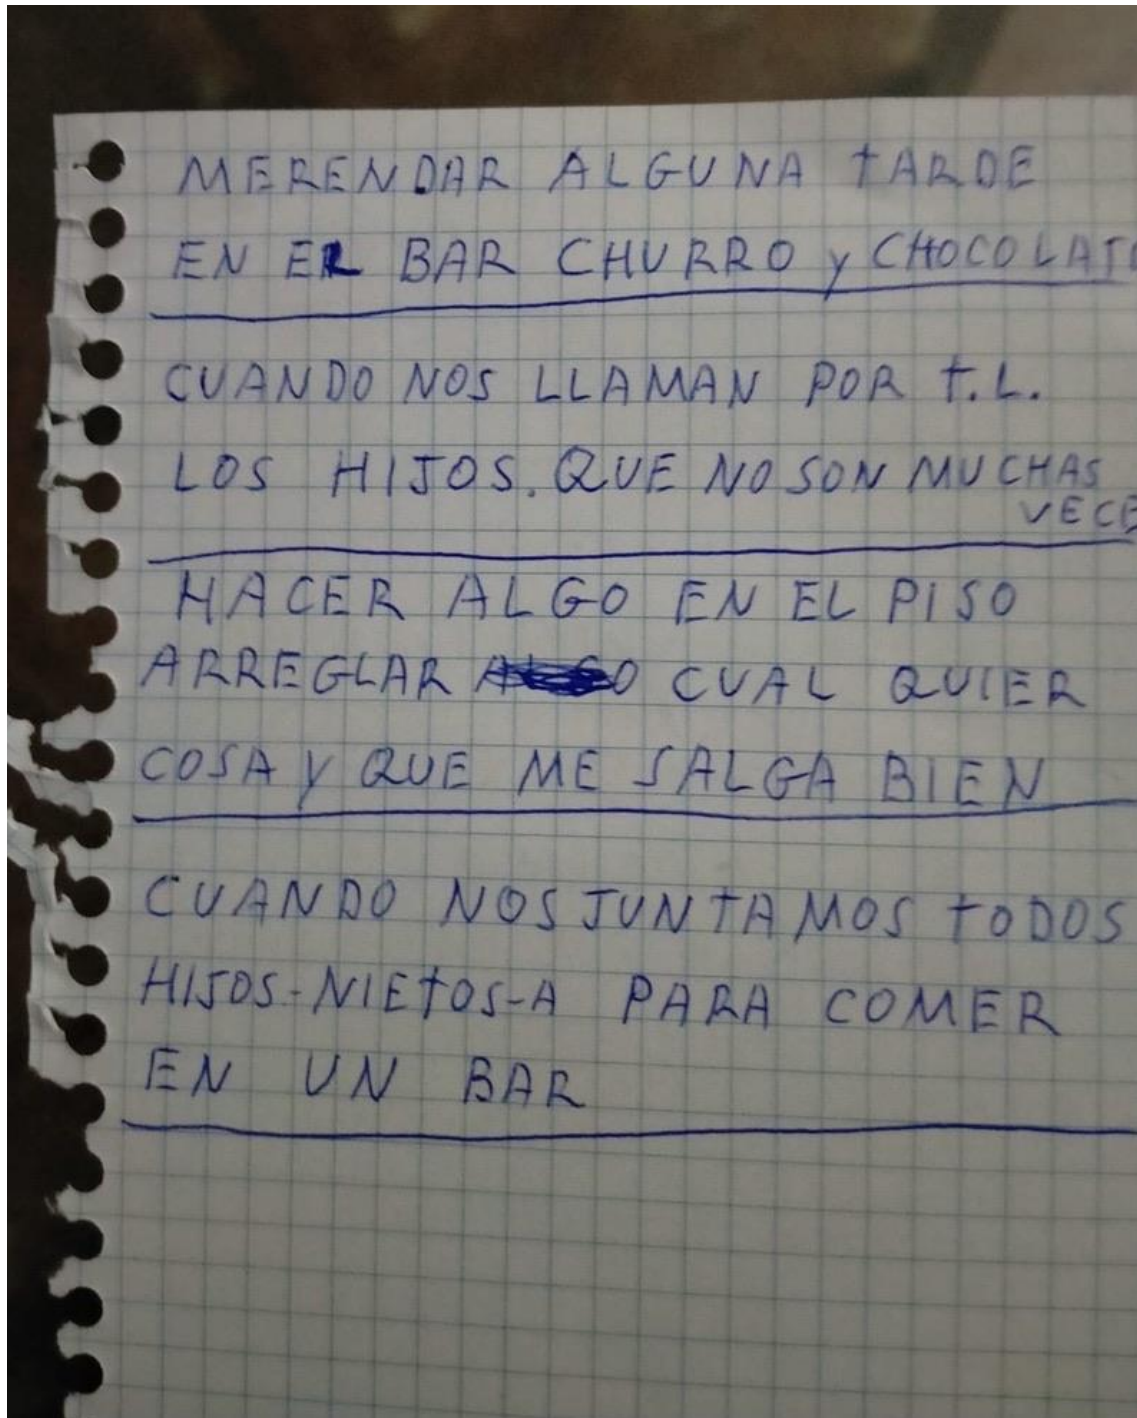 MERENDAR ALGUNA TARDE
EN EL BAR CHURRO y CHOCOLAT
CUANDO NOS LLAMAN POR T.L.
LOS HIJOS. QUE NO SON MUCHAS
VECE
HACER ALGO EN EL PISO
ARREGLAR CUAL QUIER
COSA Y QUE ME SALGA BIEN
CUANDO NOS JUNTAMOS TODOS
HIJOS-NIETOS-A PARA COMER
EN UN BAR